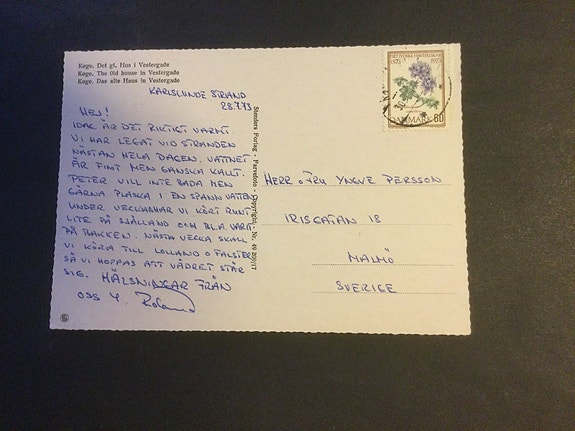 Køge. Det gl. Hus i Vestergade
Køge. The old house in Vestergade
Køge. Das alte Haus in Vestergade
KARLSLUNDE STRAND
28.7.73
HEJ!
IDAG ÄR DET RIKTIGT VARMT.
VI HAR LEGAT VID STRANDEN
NÄSTAN HELA DAGEN. VATTNET
ÄR FINT MEN GANSKA KALLT.
PETER VILL INTE BADA MEN
GÄRNA PLASKA I EN SPANN VATTEN
UNDER VECKAN HAR VI KÖRT RUNT
LITE PÅ SJÄLLAND OCH BL.A. VARIT
PÅ BAKKEN. NÄSTA VECKA SKALL
VI KÖRA TILL LOLLAND O FALSTER
SÅ VI HOPPAS ATT VÄDRET STÅR
SIG. HÄLSNINGAR FRÅN
OSS 4. Roland
Sanders Forlag - Farvefoto - Copyright - Nr. 49 209/17
DET JYDSKE HAVESELSKAB
1873 1973
DANMARK 80
HERR O FRU YNGVE PERSSON
IRISGATAN 18
MALMÖ
SVERIGE